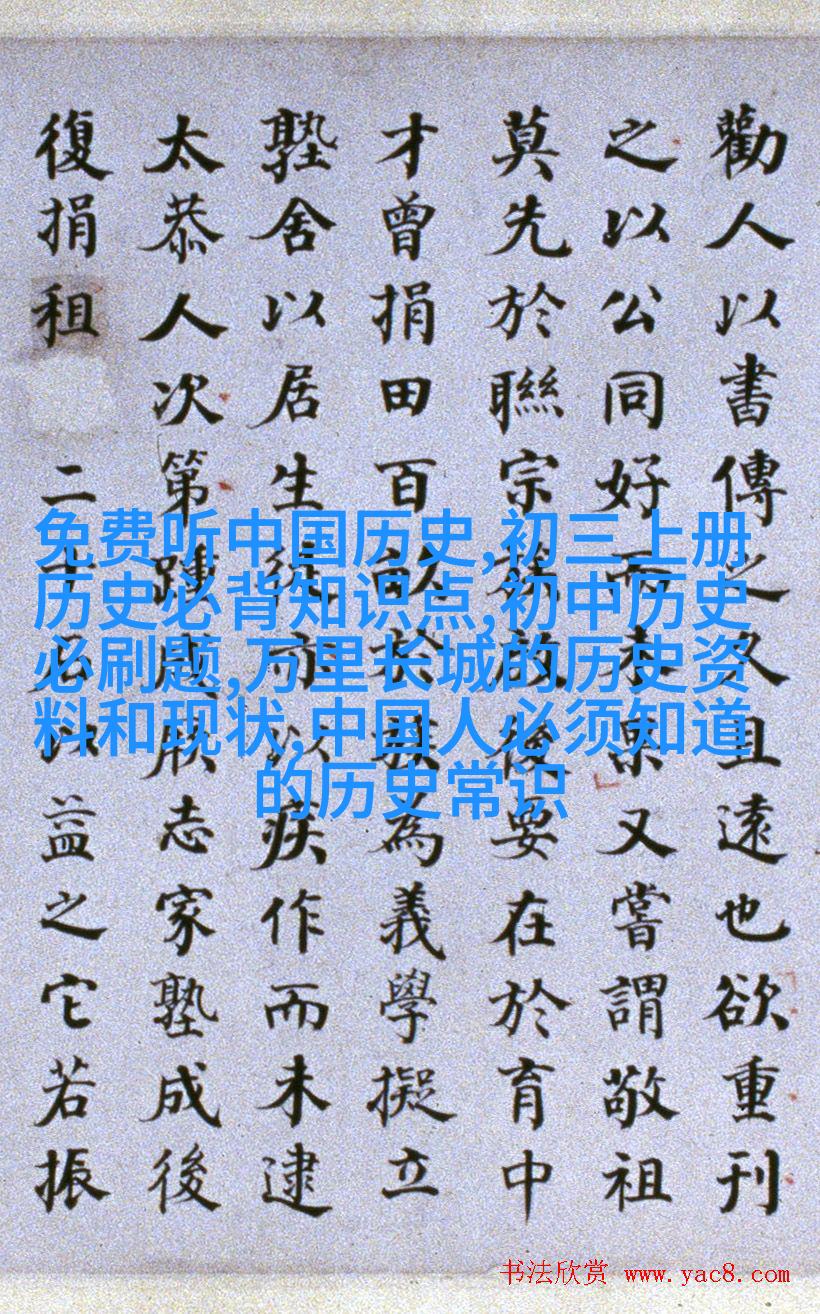 勸人以書傳之久且遠也欲重刊
之以公同好而未果又嘗謂敬祖
莫先於聯宗族後要在於育中
才曾捐田百畝於族為義學擬立
塾舍以居生徒以疾作而未逮
太恭人次第踵成厥志家塾成後
復捐租二十石以益之它若振
免费听中国历史,初三上册
历史必背知识点,初中历史
必刷题,万里长城的历史资
料和现状,中国人必须知道
的历史常识
书法欣赏 www.yac8.com